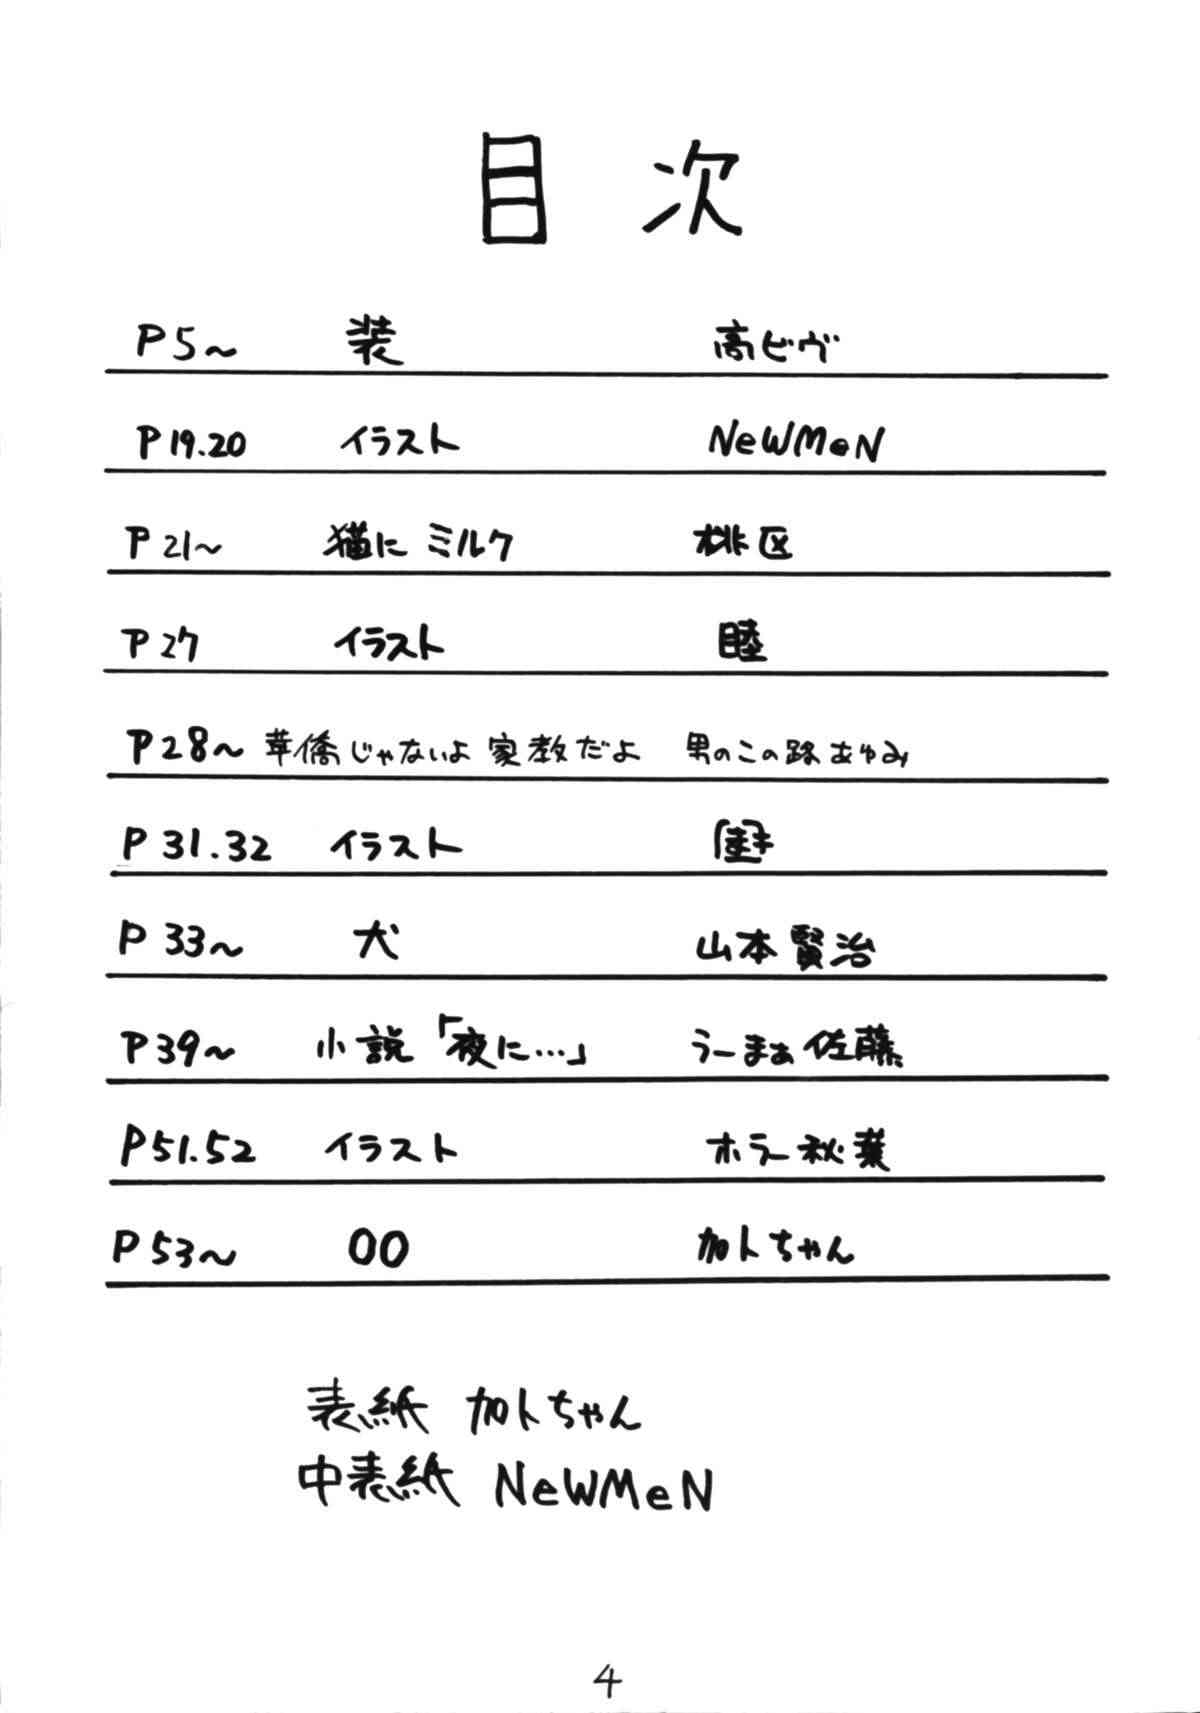 目次
P5～ 装 高ビヴ
P19.20 イラスト NeWMeN
P21～ 猫にミルク 桃区
P27 イラスト 睦
P28～ 華僑じゃないよ家教だよ 男のこの路あゆみ
P31.32 イラスト
P33～ 犬 山本賢治
P39～ 小説「夜に…」 うーまぁ佐藤
P51.52 イラスト ホラー秋葉
P53～ 〇〇 加トちゃん
表紙 加トちゃん
中表紙 NeWMeN
4